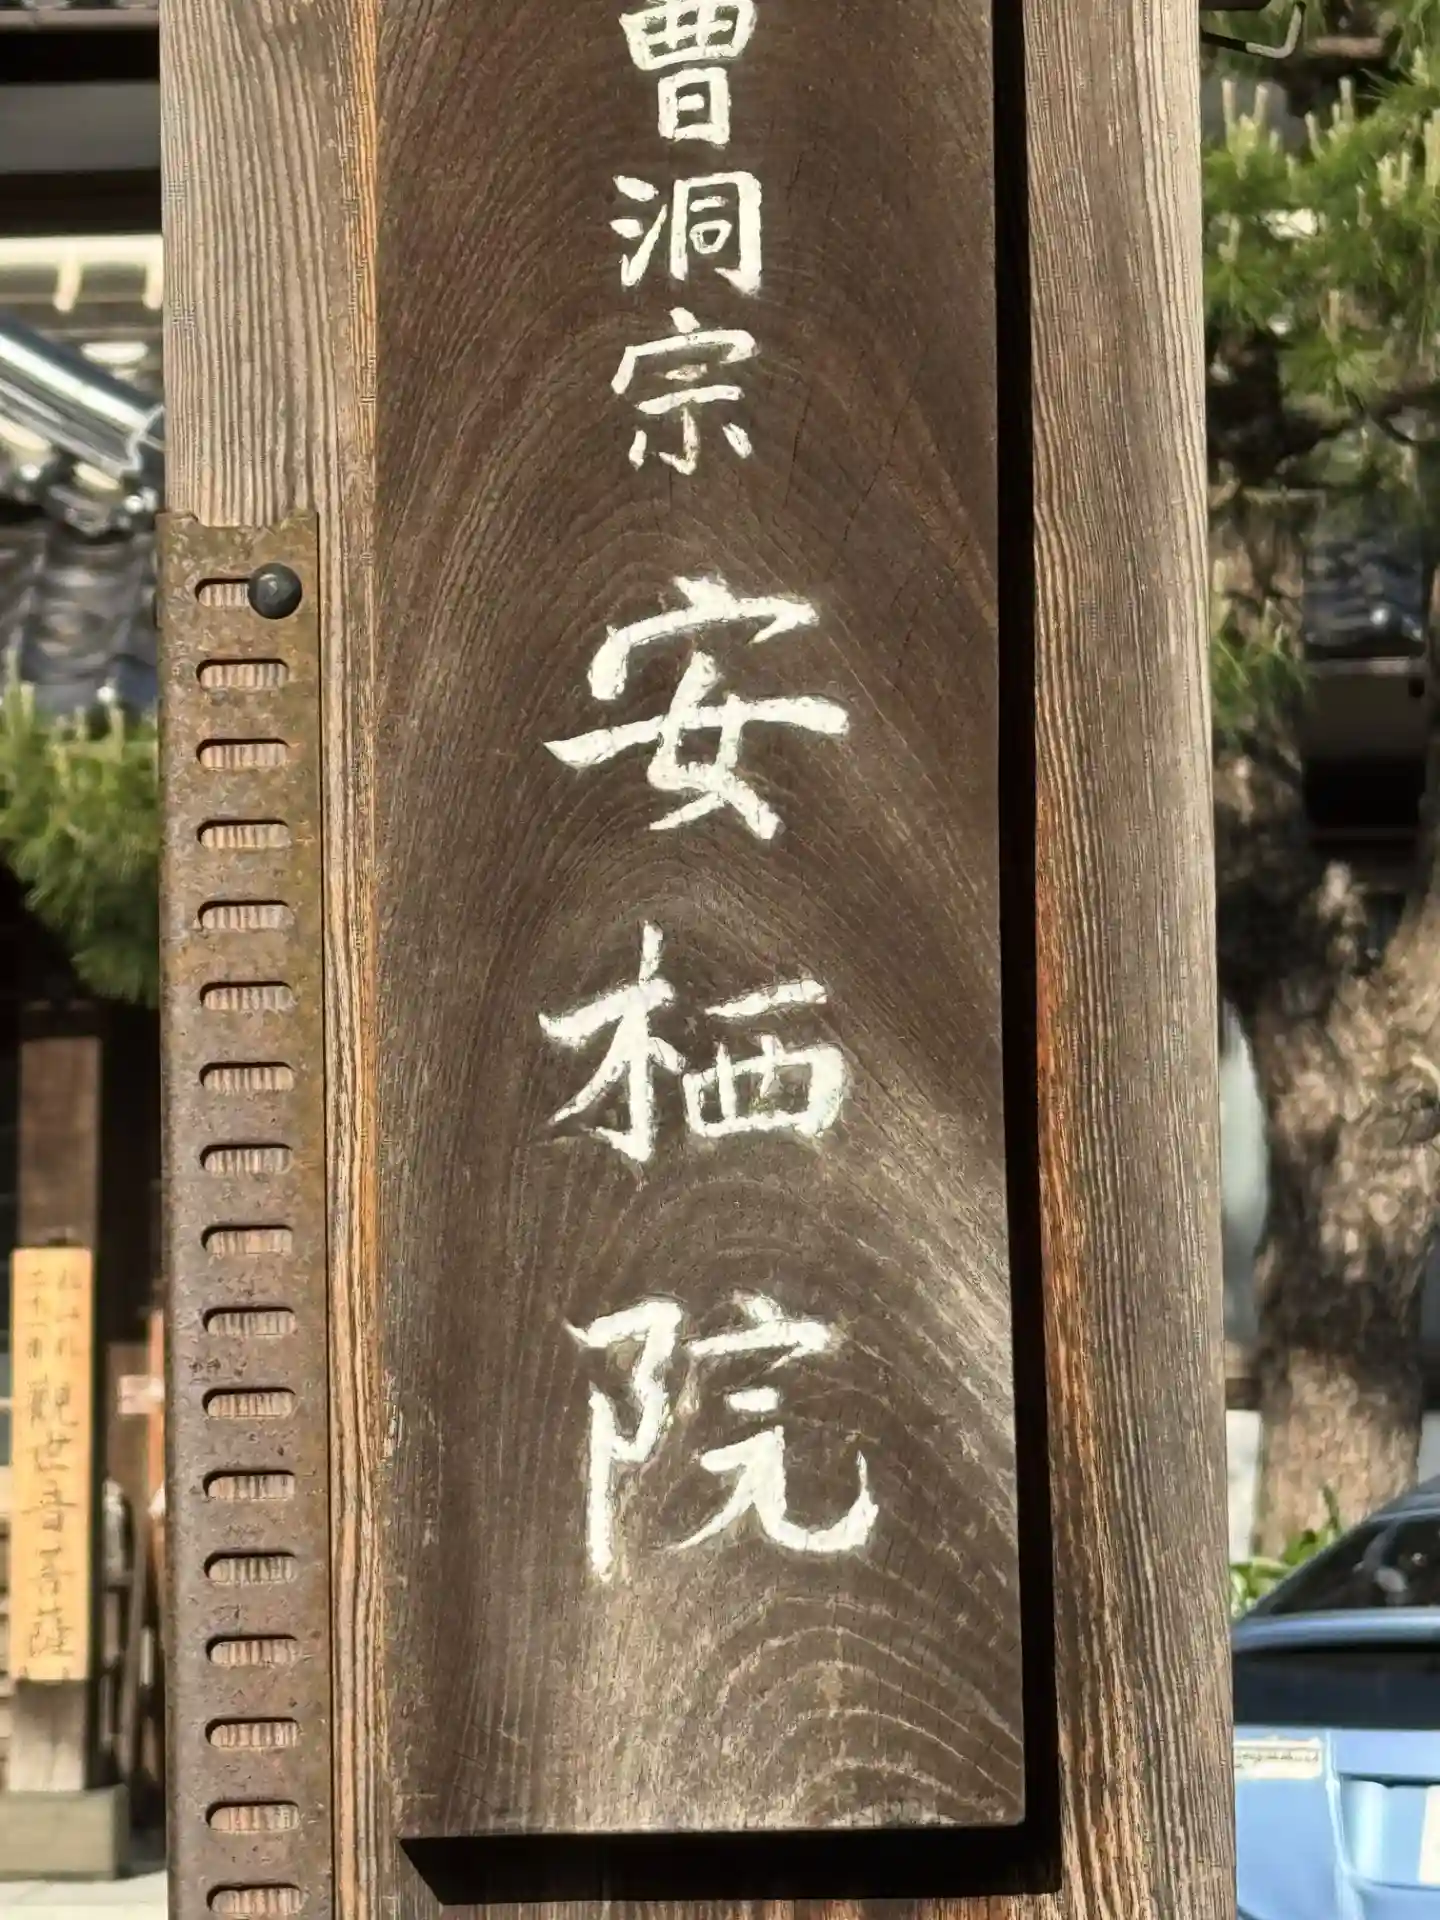 曹洞宗 安栖院
観世音菩薩